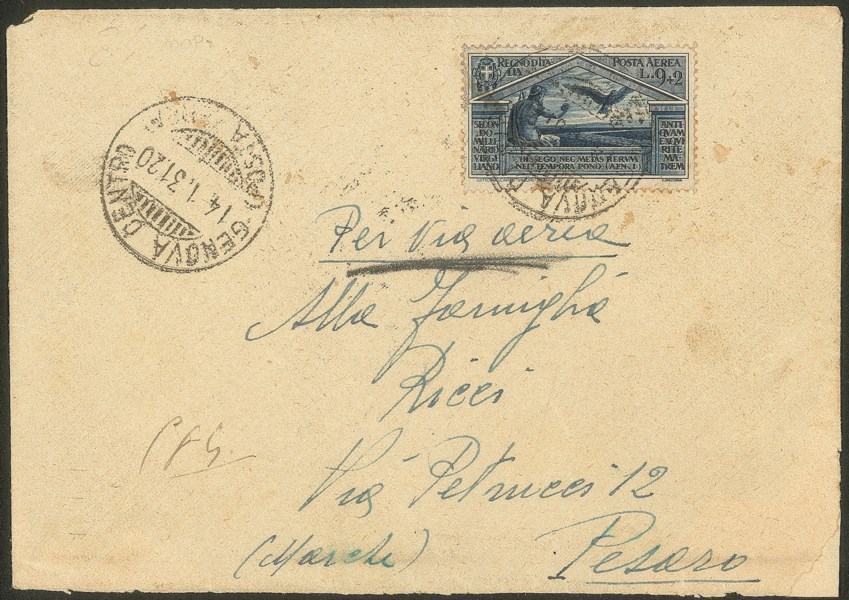 REGNO D'ITALIA
POSTA AEREA
L.9+2
SECONDO MILLENARIO VIRGILIANO
ANTIQUAM EXQUIRITE MATREM
HIS EGO NEC METAS RERVM
NEC TEMPORA PONO (AEN·I)
GENOVA CENTRO
14.1.31 20
Per via aerea
Alla Famiglia
Ricci
Via Petrucci 12
(Marche) Pesaro